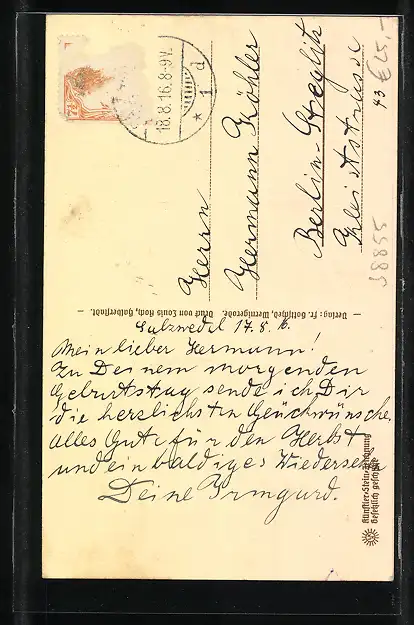 Herrn
Hermann Köhler
Berlin-Steglitz
Kleiststrasse
43
€ 25,-
58855
18.8.16.8-9V.
* 1 d
7½
Verlag: Fr. Gottsched, Wernigerode. Druck von Louis Koch, Halberstadt.
Salzwedel 17.8.16.
Mein lieber Hermann!
Zu Deinem morgenden
Geburtstag sende ich Dir
die herzlichsten Glückwünsche.
Alles Gute für den Herbst
und ein baldiges Wiedersehn
Deine Irmgard.
Künstler-Stein-Zeichnung
Gesetzlich geschützt